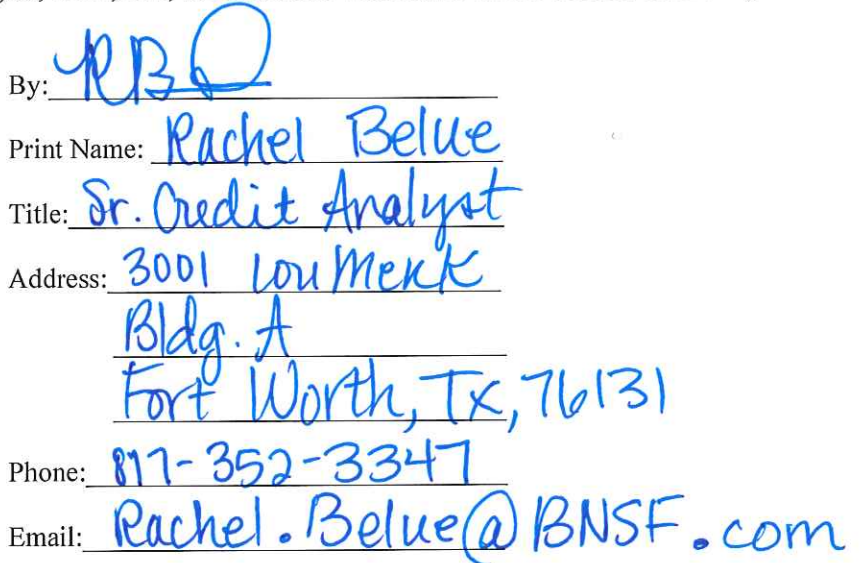 By: RB
Print Name: Rachel Belue
Title: Sr. Credit Analyst
Address: 3001 Lou Menk
Bldg. A
Fort Worth, Tx, 76131
Phone: 817-352-3347
Email: Rachel.Belue@BNSF.com